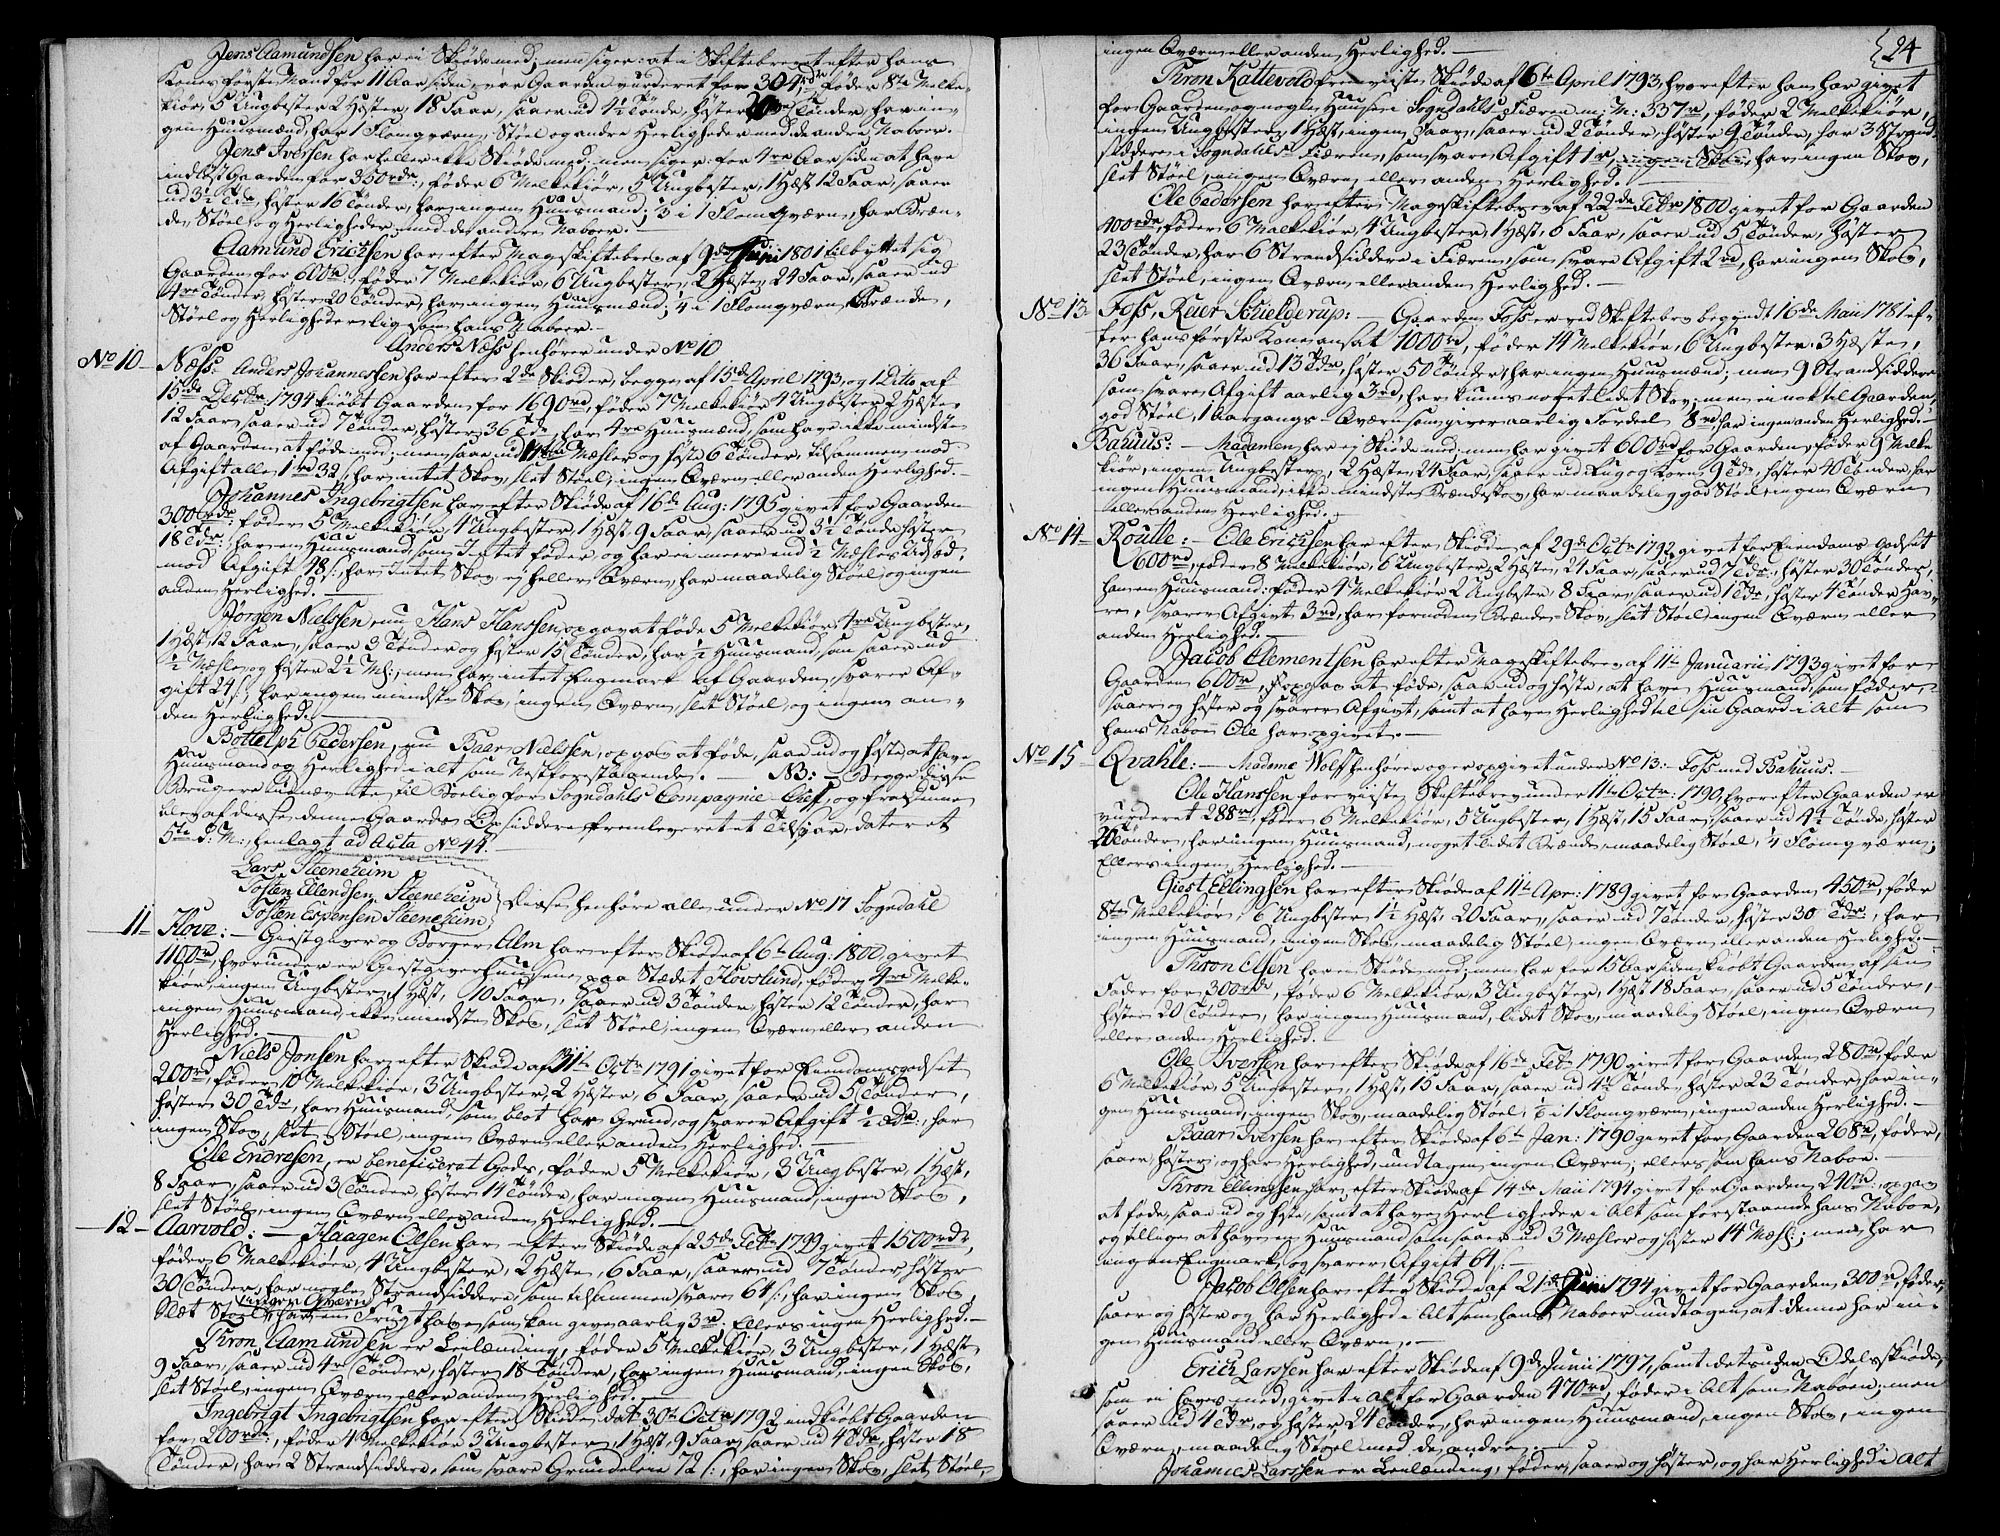 Jens Aamundsen har ei Skiøde med; men siger: at i Skiftebrevet efter hans
Kones første Mand for 11 Aar siden, var Gaarden vurderet for 304 rdr, føder 8te Melke-
kiør, 5 Ungbester, 2 Hester, 18 Faar, saaer ud 4½ Tønde, høster 20 Tønder, har in-
gen Huusmænd, har 1 Flomqværn, Støel og andre Herligheder med de andre Naboer.
Jens Iversen har heller ikke Skiøde med; men siger: for 4re Aar siden at have
indløst Gaarden for 350 rdr:, føder 6 Melkekiør, 5 Ungbester, 1 Hæst 12 Faar, saaer
ud 3½ Tdr, høster 16 Tønder, har ingen Huusmand; 3 i 1 Flomqværn, har Bræn-
de, Støel og Herligheder, med de andre Naboer.
Aamund Ericksen har efter Mageskiftebrev af 9de Junii 1801 tilbyttet sig
Gaarden for 600 rd:, føder 7 Melkekiør, 6 Ungbester, 2 Hæster, 24 Faar, saaer ud
4re Tønder, høster 20 Tønder, har ingen Huusmænd; ¼ i 1 Flomqværn, Brænde,
Støel og Herligheder ligesom hans Naboer.
Anders Næss henhører under No 10
No 10 Næss: Anders Johannessen har efter 2de Skiøder, begge af 15de April 1793, og 1 Ditto af
15de Decbr 1794 kiøbt Gaarden for 1690 rd, føder 7 Melkekiør 4 Ungbester 2 Hæster
12 Faar, saaer ud 7 Tønder, høster 36 Tdr, har 4re Huusmænd, som have ikke mindste
af Gaarden at føde med; men saar ud Mæsler og høste 6 Tønder, tilsammen mod
Afgift alle 1 rd 32 s, har intet Skov, slet Støel, ingen Qværn eller anden Herlighed.
Johannes Ingebrigtsen har efter Skiøde af 16de Aug: 1795 givet for Gaarden
300 rdr: føder 5 Melkekiør, 4 Ungbester, 1 Hæst 9 Faar, saaer ud 3½ Tønde høster
18 Tdr: har en Huusmand, som Intet føder og har ei meere end ½ Mæsles Udsæd
mod Afgift 48 s: har Intet Skov, ej heller Qværn, har maadelig Støel, og ingen
anden Herlighed.
Jørgen Nielssen, nu Hans Hanssen, opgav at føde 5 Melkekiør, 4re Ungbester,
1 Hæst, 12 Faar, saaer 3 Tønder og høster 15 Tønder, har ½ Huusmand, som saaer ud
½ Mæsler og høster 2½ M:; men har intet Engmark af Gaarden, svarer Af-
gift 24 s: har ingen mindste Skov, ingen Qværn, slet Støel, og ingen an-
den Herlighed.
Bottolph Pedersen, nu Baar Nielssen, opgav at føde, saae ud og høste, at have
Huusmand og Herlighed i alt som Næstforestaaende. — NB: — Begge disse
Brugere udnævnte til Boelig for Sogndahls Compagnie-Chef, og fra dennem
blev af disse denne Gaards Opsiddere fremleveret et Tilsvar, dateret
5te d. M:, henlagt ad Acta No 44.
Lars Steeneheim
Tosten Ellendsen Steeneheim
Tosten Espensen Steeneheim
Disse henhøre alle under No 17 Sogndahl
11 Hove: — Giestgiver og Borger, Alm har efter Skiøde af 6te Aug: 1800, givet
1100 rd, hvorunder er Giestgiverhuusene paa Stædet Hovslund, føder 4re Melke-
kiør, ingen Ungbester, 1 Hæst, 10 Faar, saaer ud 3 Tønder, høster 12 Tønder, har
ingen Huusmand, ikke mindste Skov, slet Støel, ingen Qværn eller anden
Herlighed.
Niels Jonsen har efter Skiøde af 31te Octbr 1791 givet for Eiendomsgodset
200 rd, føder 10 Melkekiør, 3 Ungbester, 2 Hæster, 6 Faar, saaer ud 5 Tønder,
høster 30 Tdr, har Huusmand, som blot har Grund, og svarer Afgift ½ rdr: har
ingen Skov, slet Støel, ingen Qværn eller anden Herlighed.
Ole Endresen, er beneficerat Gods, føder 5 Melkekiør, 3 Ungbester, 1 Hæst,
8 Faar, saaer ud 3 Tønder, høster 14 Tønder, har ingen Huusmand, ingen Skov,
slet Støel, ingen Qværn eller anden Herlighed.
12 Aarvold: — Haagen Olsen har efter Skiøde af 25de Febr 1799 givet 1500 rdr,
føder 6 Melkekiør, 4 Ungbester, 2 Hæster, 6 Faar, saaer ud 7 Tønder, høster
30 Tønder, har nogle Strandsiddere, som tilsammen svare 64 s:, har ingen Skov,
ingen Qværn
Slæt Støel har en Frugthave, som kan give aarlig 3 rd. Ellers ingen Herlighed.
Thron Aamundsen er Leilænding, føder 5 Melkekiør, 3 Ungbester, 1 Hæst
9 Faar, saaer ud 4re Tønder, høster 18 Tønder, har ingen Huusmand, ingen Skov,
slet Støel, ingen Qværn eller anden Herlighed.
Ingebrigt Ingebrigtsen har efter Skiøde, dat 30te Octbr 1792 indkiøbt Gaarden
for 200 rdr:, føder 4 Melkekiør, 3 Ungbester, 1 Hæst, 9 Faar, saaer ud 4 Tdr, høster 18
Tønder, har 2 Strandsiddere, som svare Grundeleie 72 s:, har ingen Skov, slet Støel,
24
ingen Qværn eller anden Herlighed.
Thron Kattevold foreviiste Skiøde af 6te April 1793, hvorefter han har givet
for Gaarden og nogle Huuse i Sogndahls Fiæren m: M: 337 rd, føder 2 Melkekiør,
ingen Ungbester, 1 Hæst, ingen Faar, saaer ud 2 Tønder, høster 9 Tønder, har 3 Strand-
siddere i Sogndahls Fiæren, som svare Afgift 1 rd, ingen Skov, har ingen Skov,
slet Støel, ingen Qværn eller anden Herlighed.
Ole Pedersen har efter Mageskiftebrev af 22de Febr 1800 givet for Gaarden
400 rdr, føder 6 Melkekiør, 4 Ungbester, 1 Hæst, 6 Faar, saaer ud 5 Tønder, høster
23 Tønder, har 6 Strandsiddere i Fiæren, som svare Afgift 2 rd, har ingen Skov,
slet Støel, ingen Qværn eller anden Herlighed.
No 13 Foss, Reier Schielderup: — Gaarden Foss er ved Skiftebrev begyndt 16de Maii 1781 ef-
ter hans første Kone ansat 1000 rd, føder 14 Melkekiør, 6 Ungbester, 3 Hæste,
36 Faar, saaer ud 13 Tdr, høster 50 Tønder, har ingen Huusmænd; men 9 Strandsiddere
som svare Afgift aarlig 3 rd, har kuns noget lidet Skov, men ei nok til Gaarden,
god Støel, 1 Aargangs-Qværn som giver aarlig Fordeel 8 rd, har ingen anden Herlighed.
Bahuus: — Madamen har ei Skiøde med, men har givet 600 rd for Gaarden, føder 9 Melke-
kiør, ingen Ungbester, 2 Hæste, 24 Faar, saaer ud Rug og Korn 9 Tdr, høster 40 Tønder, har
ingen Huusmand, ikke mindste Brændeskov, har maadelig god Støel, ingen Qværn
eller anden Herlighed.
No 14 Routle: — Ole Ericksen har efter Skiøde af 29de Octbr 1792 givet for Eiendoms Godset
600 rd, føder 8 Melkekiør, 6 Ungbester, 2 Hæste, 24 Faar, saaer ud 7 Tdr:, høster 30 Tønder,
har en Huusmand: føder 4 Melkekiør 2 Ungbester 8 Faar, saaer ud 1 Tdr, høster 4 Tønder Hav-
re, svarer Afgivt 3 rd, har fornøden Brænde Skov, slet Støel, ingen Qværn eller
anden Herlighed.
Jacob Clementsen har efter Mageskiftebrev af 11te Januarii 1793 givet for
Gaarden 600 rd, opgav at føde, saae ud og høste, at have Huusmand, som føder,
saaer og høster og svarer Afgivt, samt at have Herlighed til sin Gaard i Alt som
hans Naboe Ole har opgivet.
No 15 Qvahle: — Madame Wolff henhører og er opgivet under No 13: Foss med Bahuus.
Ole Hanssen foreviiste Skiftebrev under 11te Octbr: 1790, hvorefter Gaarden er
vurderet 288 rd, føder 6 Melkekiør, 5 Ungbester, 1 Hæst, 15 Faar, saaer ud 4½ Tønde, høster
20 Tønder, har ingen Huusmand, noget lidet Brænde, maadelig Støel, ¼ Flomqværn;
Ellers ingen Herlighed.
Giest Ellingsen har efter Skiøde af 11te Apr: 1789 givet for Gaarden 450 rd, føder
8te Melkekiør, 6 Ungbester 1½ Hæst, 20 Faar, saaer ud 7 Tønder, høster 30 Tdr:, har
ingen Huusmand, ingen Skov, maadelig Støel, ingen Qværn eller anden Herlighed.
Thron Olsen har ei Skiøde med, men har for 15 Aar siden kiøbt Gaarden af sin
Fader for 300 rdr, føder 6 Melkekiør, 3 Ungbester, 1 Hæst 18 Faar, saaer ud 5 Tønder,
høster 20 Tønder, har ingen Huusmand, lidet Skov, maadelig Støel, ingen Qværn
eller anden Herlighed.
Ole Iversen har efter Skiøde af 16de Febr 1790 givet for Gaarden 280 rd, føder
6 Melkekiør, 5 Ungbester, 1 Hæst, 15 Faar, saaer ud 4½ Tønde, høster 23 Tønder, har in-
gen Huusmand, ingen Skov, maadelig Støel, i 1 Flomqværn, ingen anden Herlighed.
Baar Iversen har efter Skiøde af 6te Jan: 1790 givet for Gaarden 268 rd, føder,
saaer, høster, og har Herlighed, undtagen ingen Qværn; ellers som hans Naboe.
Thron Ellingsen har efter Skiøde af 14de Maii 1794 givet for Gaarden 240 rd: opgav
at føde, saae ud og høste, samt at have Herligheder i Alt som forestaaende hans Naboe,
og tillige at have en Huusmand, som saaer ud 3 Mæsler og høster 14 Mæsl:; men har
ingen Engmark, og svarer Afgift 64 s:
Jacob Olsen har efter Skiøde af 21de Juni 1794 givet for Gaarden 300 rd, føder,
saaer og høster og har Herlighed i Alt som hans Naboer undtagen at denne har in-
gen Huusmand eller Qværn.
Erich Larssen har efter Skiøde af 9de Junii 1797, samt desuden Odelsskiøde,
som ei haves med, givet i Alt for Gaarden 470 rd, føder i Alt som Naboen; men
saaer ud 4 Tdr, og høster 24 Tønder, har ingen Huusmand, ingen Skov, ingen
Qværn, maadelig Støel med de andre.
Johannes Larssen er Leilænding, føder, saaer og høster, og har Herlighed i Alt